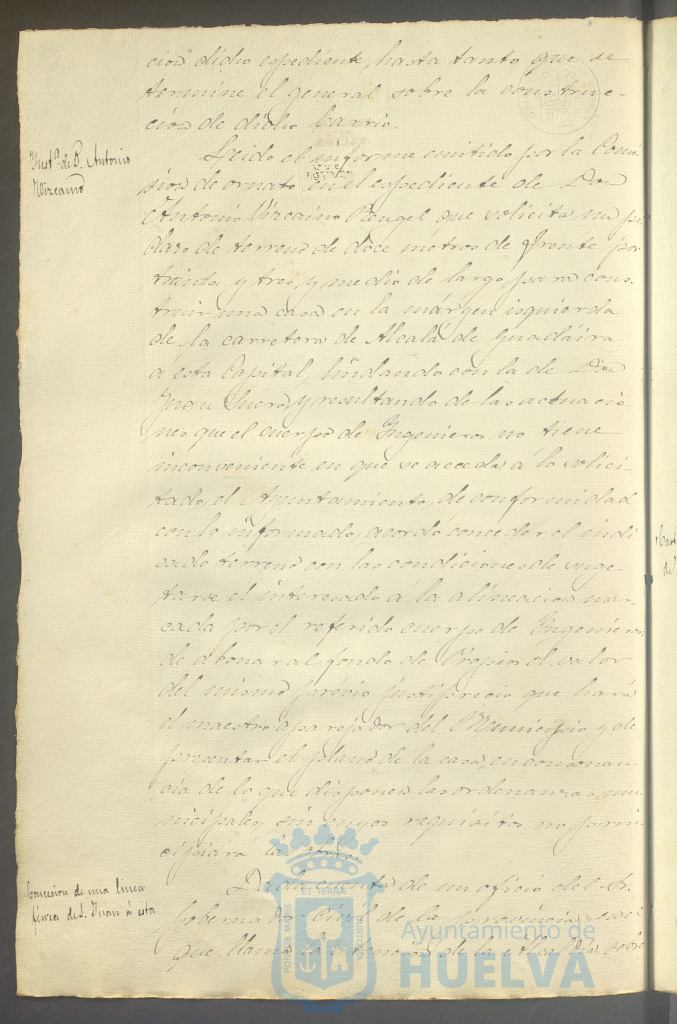 cion dicho espediente, hasta tanto que se
termine el general sobre la construc-
cion de dicho barrio.
Inst.ª de D. Antonio
Vizcaino
Leido el informe emitido por la Comi
sion de ornato en el espediente de Don
Antonio Vizcaino Rengel que solicita un pe
dazo de terreno de doce metros de frente por
treinta y tres y medio de largo, para cons-
truir una casa en la márgen izquierda
de la carretera de Alcalá de Guadaira
á esta Capital, lindando con la de Don
Juan Suero, y resultando de las actuacio
nes que el cuerpo de Ingenieros no tiene
inconveniente en que se acceda á lo solici-
tado, el Ayuntamiento, de conformidad
con lo informado, acordó conceder el indi
cado terreno con las condiciones de suge-
tarse el interesado á la alineacion mar-
cada por el referido cuerpo de Ingenieros,
de abonar al fondo de Propios el valor
del mismo prévio justiprecio que hará
el maestro aparejador del Municipio y de
presentar el plano de la casa en consonan-
cia de lo que disponen las ordenanzas mu-
nicipales, sin cuyos requisitos no prin-
cipiará la obra.
Concesion de una linea
férrea de S. Juan á esta
Dada cuenta de un oficio del Sr.
Gobernador Civil de la provincia en el
que llama la atencion de la Alcaldia sobre
Ayuntamiento de
HUELVA
PORTUS MARIS
ET TERRÆ
CUSTODIA